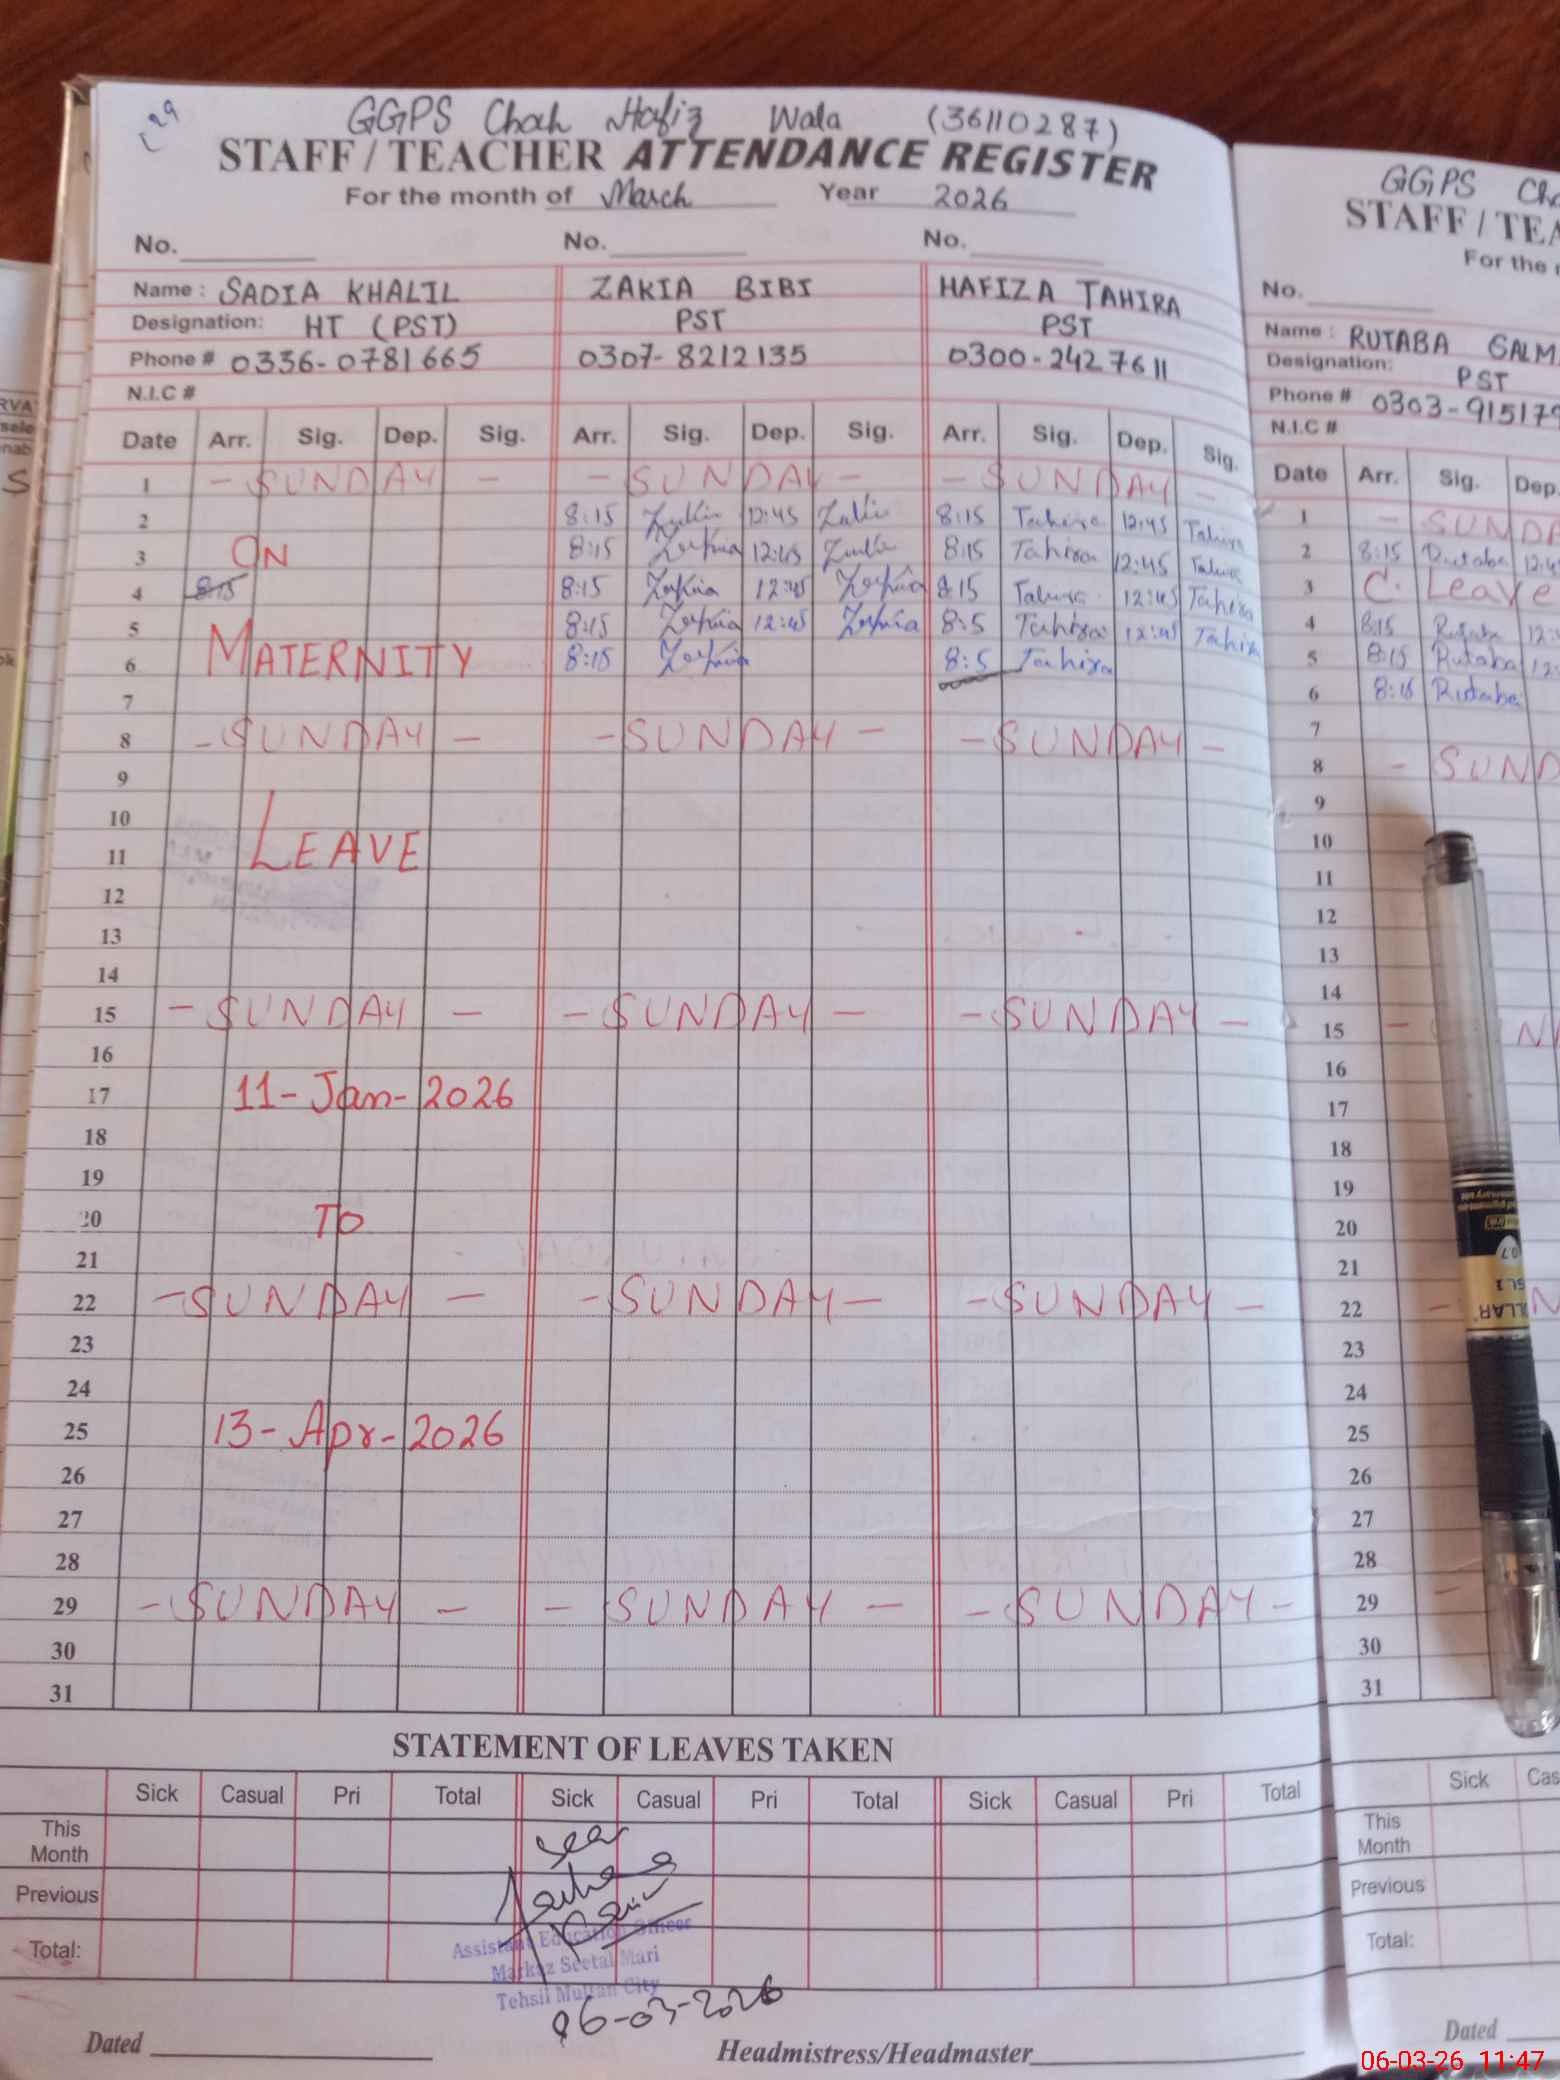 GGPS Chah Hafiz Wala (36110287)
STAFF / TEACHER ATTENDANCE REGISTER
For the month of March Year 2026
No. No. No.
Name : SADIA KHALIL ZAKIA BIBI HAFIZA TAHIRA
Designation: HT (PST) PST PST
Phone # 0336-0781665 0307-8212135 0300-2427611
N.I.C #
Date Arr. Sig. Dep. Sig. Arr. Sig. Dep. Sig. Arr. Sig. Dep. Sig.
1 - SUNDAY - - SUNDAY - - SUNDAY -
2 8:15 Zakia 12:45 Zakia 8:15 Tahira 12:45 Tahira
3 ON 8:15 Zakia 12:45 Zakia 8:15 Tahira 12:45 Tahira
4 8:15 8:15 Zakia 12:45 Zakia 8:15 Tahira 12:45 Tahira
5 8:15 Zakia 12:45 Zakia 8:5 Tahira 12:45 Tahira
6 MATERNITY 8:15 Zakia 8:5 Tahira
7
8 - SUNDAY - - SUNDAY - - SUNDAY -
9
10
11 LEAVE
12
13
14
15 - SUNDAY - - SUNDAY - - SUNDAY -
16
17 11-Jan-2026
18
19
20 TO
21
22 - SUNDAY - - SUNDAY - - SUNDAY -
23
24
25 13-Apr-2026
26
27
28
29 - SUNDAY - - SUNDAY - - SUNDAY -
30
31
STATEMENT OF LEAVES TAKEN
Sick Casual Pri Total Sick Casual Pri Total Sick Casual Pri Total
This Month
Previous
Total:
Assistant Education Officer
Markaz Seetal Mari
Tehsil Multan City
06-03-2026
Dated Headmistress/Headmaster
GGPS
STAFF / TEA
For the
No.
Name : RUTABA
Designation: PST
Phone # 0303-91517
N.I.C #
Date Arr. Sig. Dep.
1 - SUNDA
2 8:15 Rutaba 12:4
3 C. Leave
4 8:15 Rutaba 12:
5 8:15 Rutaba 12:
6 8:15 Rutaba
7
8 - SUND
9
10
11
12
13
14
15
16
17
18
19
20
21
22
23
24
25
26
27
28
29
30
31
Sick Cas
This Month
Previous
Total:
Dated
06-03-26 11:47